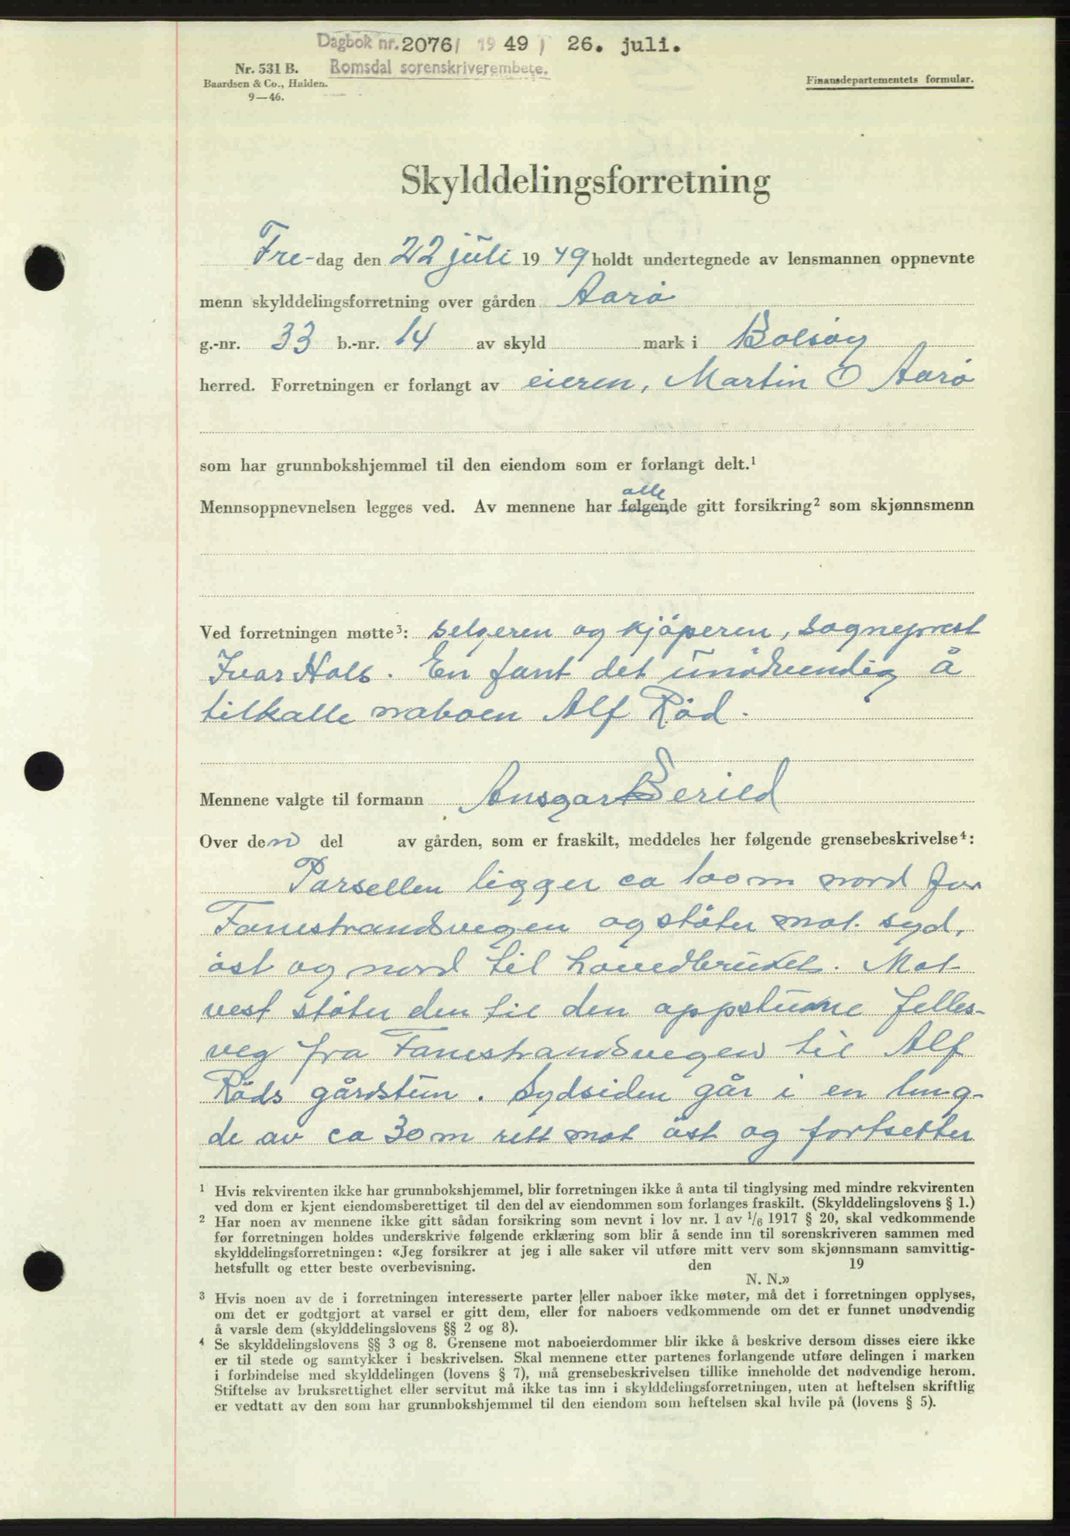 Dagbok nr. 2076 / 19 49 ) 26. juli.
Romsdal sorenskriverembete.
Nr. 531 B.
Baardsen & Co., Halden.
9—46.
Finansdepartementets formular.
Skylddelingsforretning
Fre-dag den 22 juli 19 49 holdt undertegnede av lensmannen oppnevnte
menn skylddelingsforretning over gården Aarø
g.-nr. 33 b.-nr. 14 av skyld mark i Bolsøy
herred. Forretningen er forlangt av eieren, Martin O Aarø
som har grunnbokshjemmel til den eiendom som er forlangt delt.¹
alle
Mennsoppnevnelsen legges ved. Av mennene har følgende gitt forsikring² som skjønnsmenn
Ved forretningen møtte³: selgeren og kjöperen, sogneprest
Ivar Hols. En fant det unödvendig å
tilkalle naboen Alf Röd.
Mennene valgte til formann Ansgar Berild
Over den del av gården, som er fraskilt, meddeles her følgende grensebeskrivelse⁴:
Parsellen ligger ca 100 m nord for
Fanestrandsvegen og støter mot syd,
öst og nord til hovedbruket. Mot
vest støter den til den oppstukne felles-
veg fra Fanestrandsvegen til Alf
Röds gårdstun. Sydsiden går i en leng-
de av ca 30 m rett mot öst og fortsetter
¹ Hvis rekvirenten ikke har grunnbokshjemmel, blir forretningen ikke å anta til tinglysing med mindre rekvirenten
ved dom er kjent eiendomsberettiget til den del av eiendommen som forlanges fraskilt. (Skylddelingslovens § 1.)
² Har noen av mennene ikke gitt sådan forsikring som nevnt i lov nr. 1 av 1/6 1917 § 20, skal vedkommende
før forretningen holdes underskrive følgende erklæring som blir å sende inn til sorenskriveren sammen med
skylddelingsforretningen: «Jeg forsikrer at jeg i alle saker vil utføre mitt verv som skjønnsmann samvittig-
hetsfullt og etter beste overbevisning. den 19
N. N.»
³ Hvis noen av de i forretningen interesserte parter eller naboer ikke møter, må det i forretningen opplyses,
om det er godtgjort at varsel er gitt dem, eller for naboers vedkommende om det er funnet unødvendig
å varsle dem (skylddelingslovens §§ 2 og 8).
⁴ Se skylddelingslovens §§ 3 og 8. Grensene mot naboeierdommer blir ikke å beskrive dersom disses eiere ikke
er til stede og samtykker i beskrivelsen. Skal mennene etter partenes forlangende utføre delingen i marken
i forbindelse med skylddelingen (lovens § 7), må grensebeskrivelsen tillike inneholde det nødvendige herom.
Stiftelse av bruksrettighet eller servitut må ikke tas inn i skylddelingsforretningen, uten at heftelsen skriftlig
er vedtatt av den som har grunnbokshjemmel til den eiendom som heftelsen skal hvile på (lovens § 5).